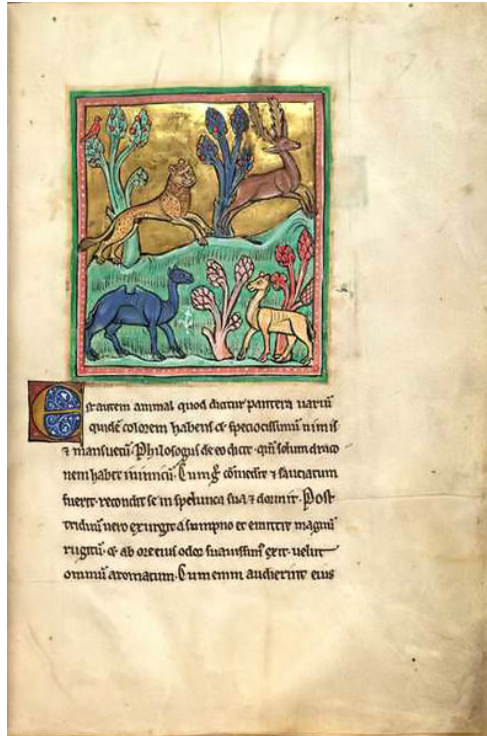 Est autem animal quod dicitur pantera uariū
quidē colorem habens & speciocissimū nimis
⁊ mansuetū. Philologus de eo dicit. qm̄ solum draco
nem habet inimicū. Cumqꝫ cōmederit ⁊ sauciatum
fuerit. recondit se in spelunca sua ⁊ dormit. Post
triduū uero exurgit a sumpno et emittit magnū
rugitū. & ab ore eius odor suauissim' exit. uelut
omniū aromatum. Cum enim audierint eius